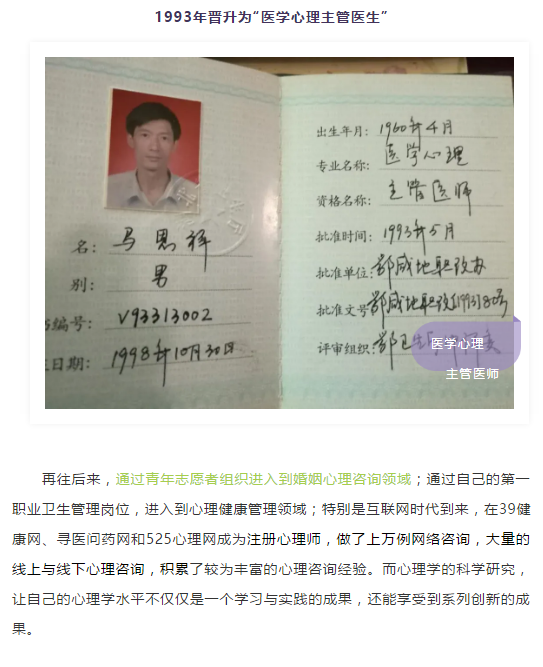 1993年晋升为“医学心理主管医生”
名：马恩祥
别：男
编号：V93313002
日期：1998年10月30日
出生年月：1960年4月
专业名称：医学心理
资格名称：主管医师
批准时间：1993年5月
批准单位：鄂咸地职改办
批准文号：鄂咸地职改(1993)80号
评审组织：鄂卫生
医学心理
主管医师
再往后来，通过青年志愿者组织进入到婚姻心理咨询领域；通过自己的第一
职业卫生管理岗位，进入到心理健康管理领域；特别是互联网时代到来，在39健
康网、寻医问药网和525心理网成为注册心理师，做了上万例网络咨询，大量的
线上与线下心理咨询，积累了较为丰富的心理咨询经验。而心理学的科学研究，
让自己的心理学水平不仅仅是一个学习与实践的成果，还能享受到系列创新的成
果。